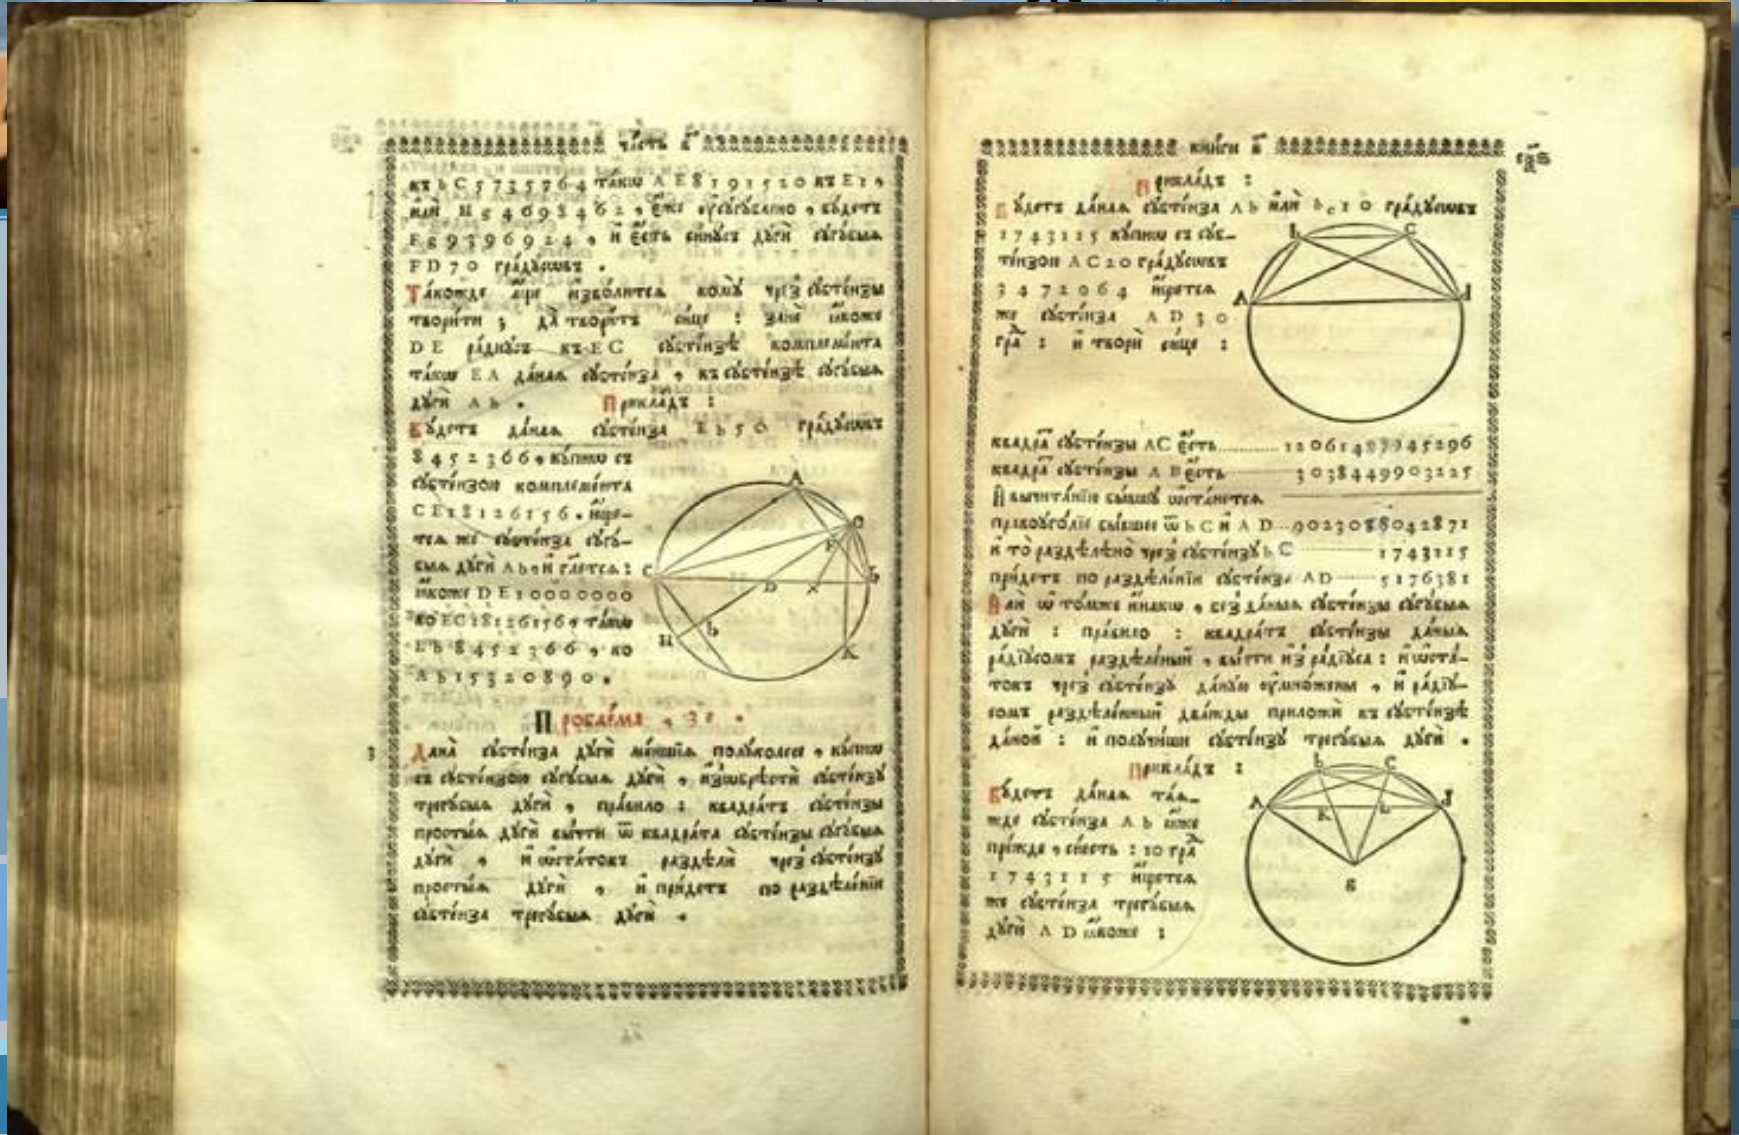 часть в҃
къ bC 5735764 такѡ AE 8191520 къ EI ,
или H 5469846 2 , еже ѹсугублено , будетъ
Fg 9396924 , и есть синусъ дуги сугубыѧ
FD 70 градусѡвъ .
Такожде аще изволитсѧ кому чрез субтензы
творити ; да творитъ сице : зане ꙗкоже
DE радіусъ къ EC субтензѣ комплемента
такѡ EA данаѧ субтенза , къ субтензѣ сугубыѧ
дуги Ab . Прикладъ :
Будетъ данаѧ субтенза Eb 50 градусѡвъ
8452366 , купнѡ съ
субтензою комплемента
CE 18126156 . ище-
тсѧ же субтенза сугу-
быѧ дуги Ab , и глетсѧ :
ꙗкоже DE 10000000
ко EC 18126156 , такѡ
Eb 8452366 , ко
Ab 15320890 .
Проблема , 3 .
3 Дана субтенза дуги меншїѧ полуколесе , купнѡ
съ субтензою сугубыѧ дуги , изѡбрѣсти субтензу
трегубыѧ дуги , правило : квадратъ субтензы
простыѧ дуги вычти ѿ квадрата субтензы сугубыѧ
дуги , и ѡстатокъ раздѣли чрез субтензу
простыѧ дуги , и придетъ по раздѣленїи
субтенза трегубыѧ дуги .
A
C
D
X
H
b
K
книги в҃
Прикладъ :
Будетъ данаѧ субтенза Ab или bc 10 градусѡвъ
1743115 купнѡ съ суб-
тензою AC 20 градусѡвъ
3472964 ищетсѧ
же субтенза AD 30
гра : и твори сице :
b C
A d
квадра субтензы AC есть
квадра субтензы AB есть 3038449903225
И вычитанїю бывшу ѡстанетсѧ
правоуголїе бывшее ѿ bC и AD 9023088042871
и то раздѣлено чрез субтензу bC 1743115
придетъ по раздѣленїи субтенза AD 5176381
Или ѿ томже инакѡ , без даныѧ субтензы сугубыѧ
дуги : правило : квадратъ субтензы даныѧ
радїусомъ раздѣленый , вычти из радїуса : и ѡста-
токъ чрез субтензу даную ѹмноженый , и радїу-
сомъ раздѣленный дважды приложи къ субтензѣ
даной : и получиши субтензу трегубыѧ дуги .
Прикладъ :
Будетъ данаѧ таѧ-
жде субтенза Ab ꙗже
прежде , сиесть : 10 гра
1743115 ищетсѧ
же субтенза трегубыѧ
дуги AD ꙗкоже :
b C
A d
K L
g